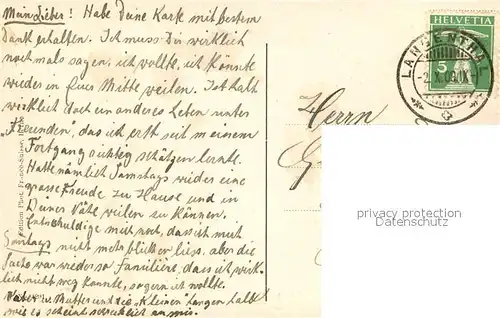 Mein Lieber! Habe Deine Karte mit bestem
Dank erhalten. Ich muss Dir wirklich
nochmals sagen, ich wollte, ich könnte
wieder in Eurer Mitte weilen. Ist halt
wirklich doch ein anderes Leben unter
Freunden, das ich erst seit meinem
Fortgang richtig schätzen lernte.
Hatte nämlich Samstags wieder eine
grosse Freude zu Hause und in
Deiner Nähe weilen zu können.
Entschuldige mich noch, dass ich mich
Sonntags nicht mehr blicken liess, aber die
Sache war wieder so Familiäre, dass ich wirk-
lich nicht weg konnte, sogern ich wollte.
Vater u. Mutter und die "Kleinen" hangen halt
wie es scheint schrecklich an mir.
Edition Phot. Franco-Suisse
HELVETIA
5
LANGENTHAL
Herrn
privacy protection
Datenschutz